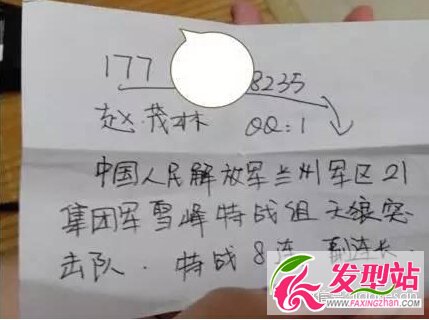 177 8235
赵茂林 QQ:1
中国人民解放军兰州军区21
集团军雪峰特战组天狼突
击队.特战8连 副连长.
发型站
www.FAXINGZHAN.com